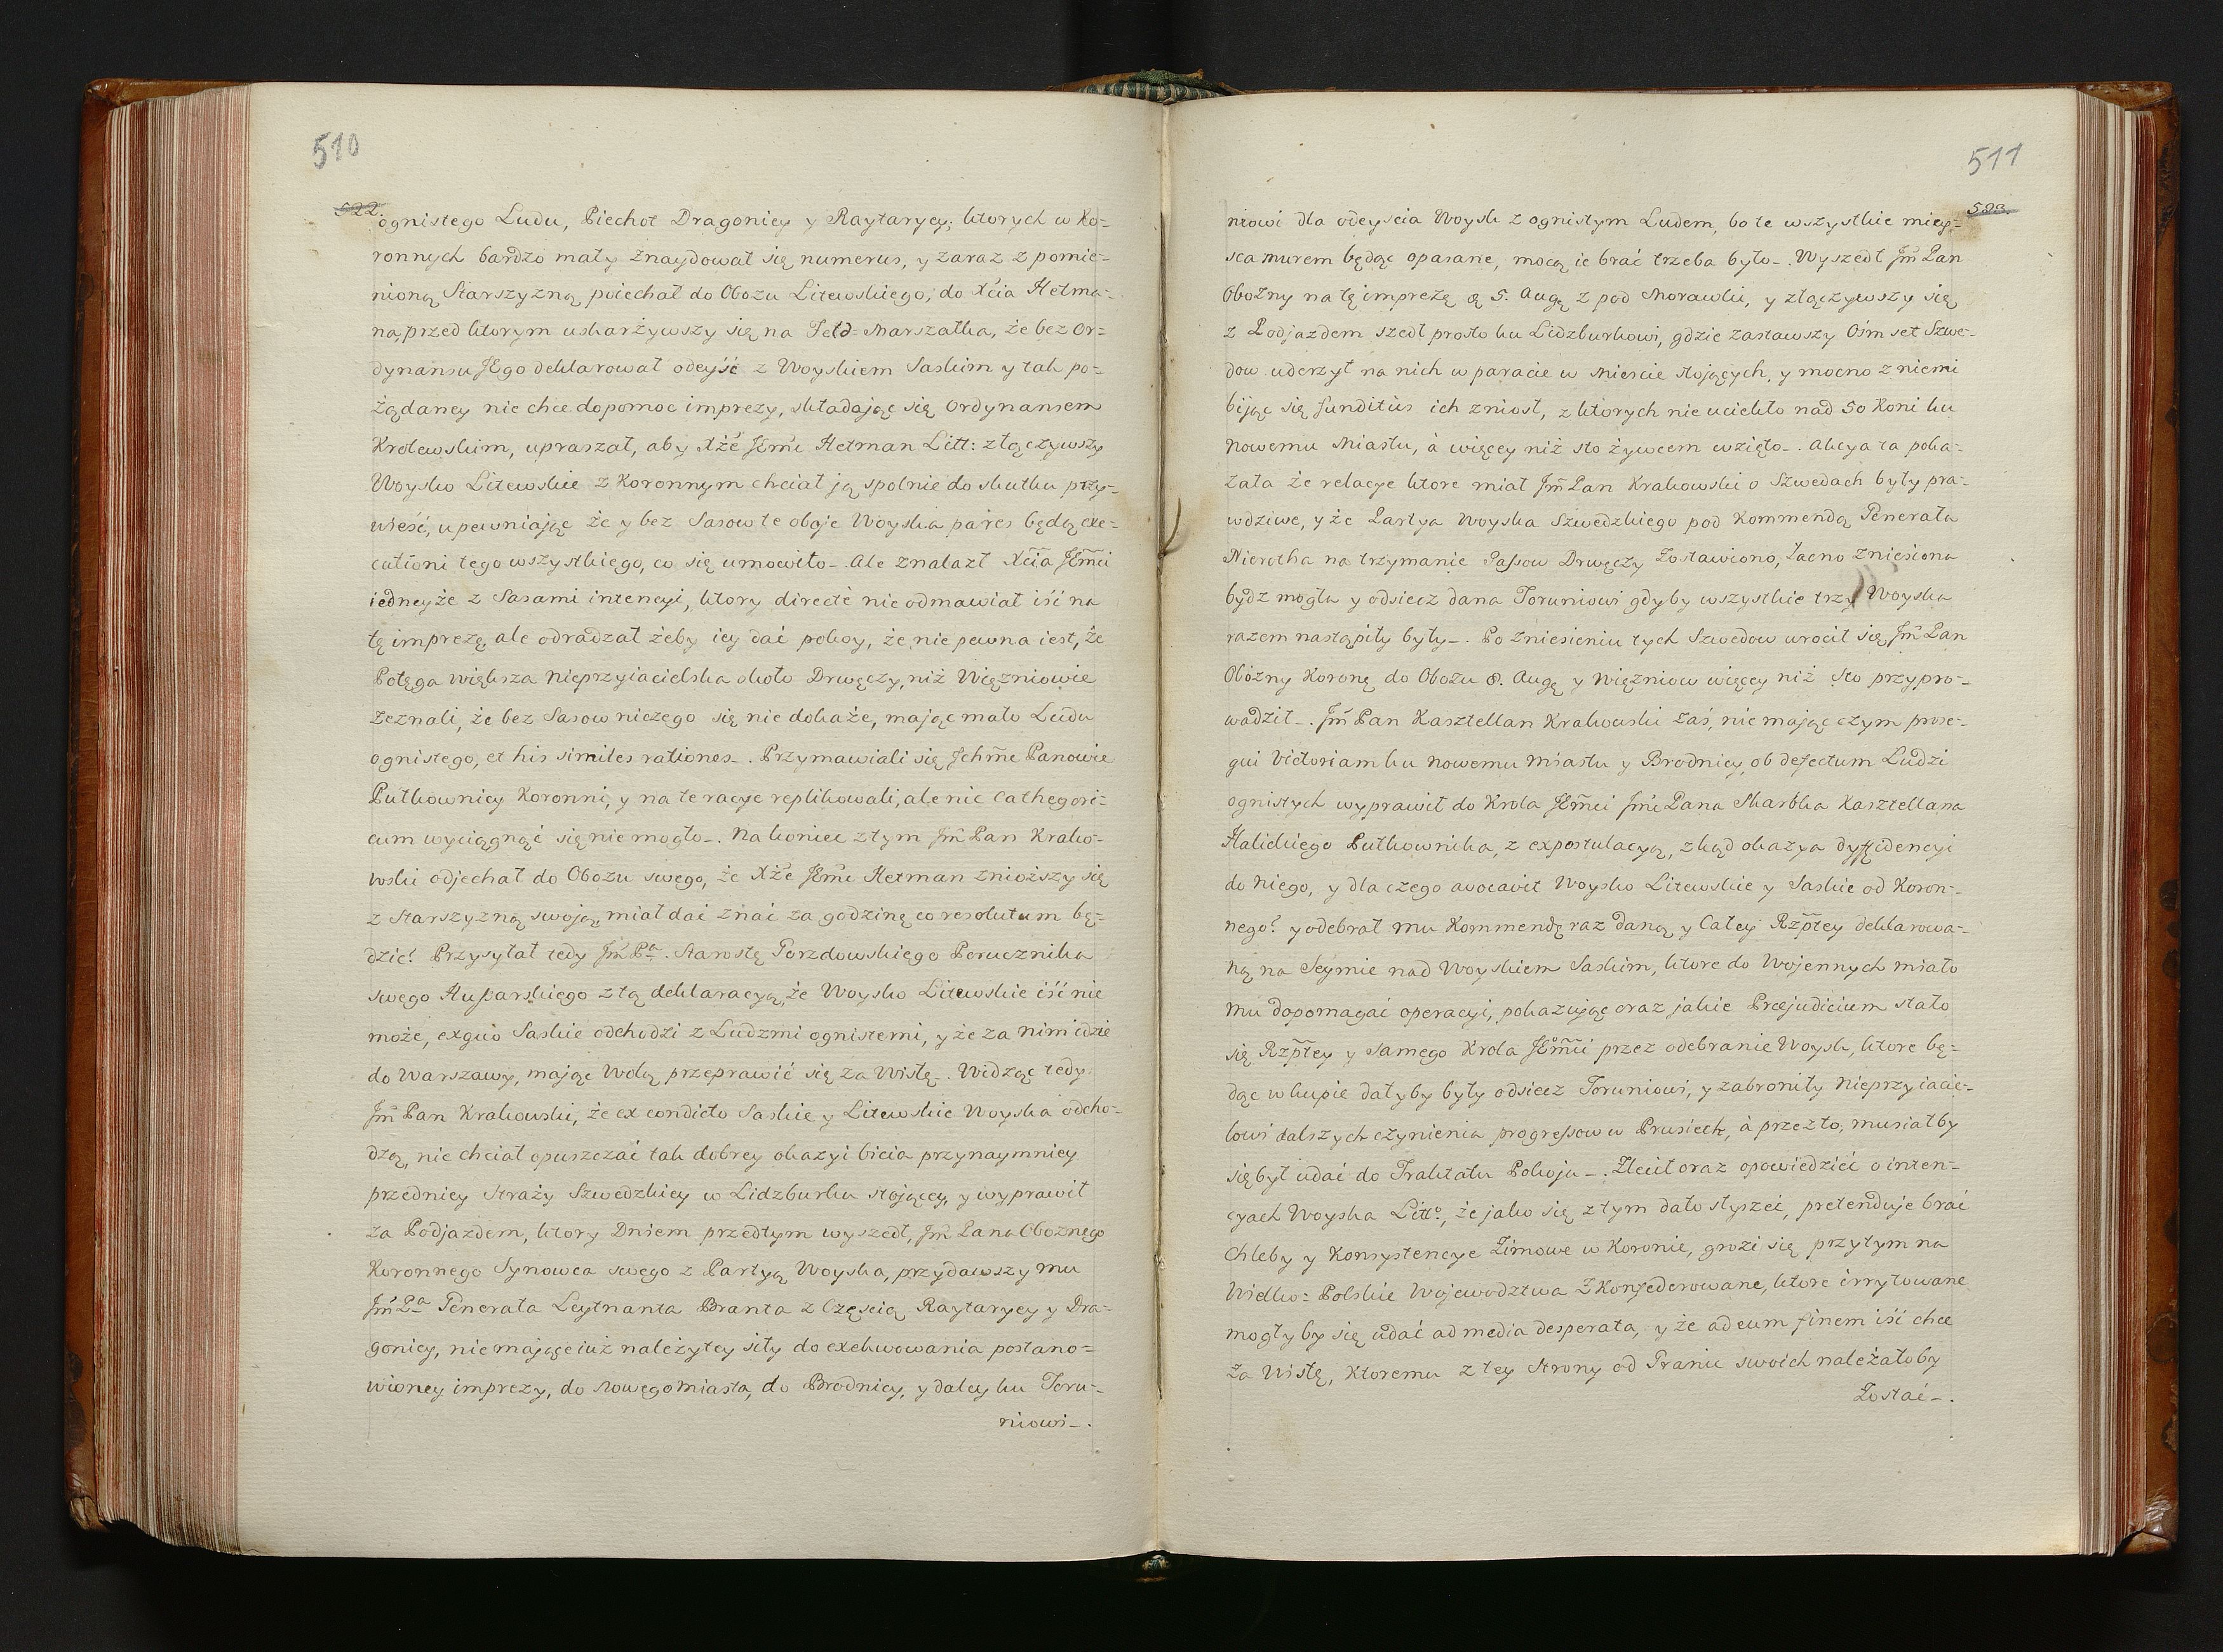 510
522.
ognistego Ludu, Piechot Dragonicy y Raytaryey, ktorych w Ko-
ronnych bardzo mały znaydował się numerus, y zaraz z pomie-
nioną Starszyzną poiechał do Obozu Litewskiego, do Xcia Hetma-
na, przed ktorym uskarżywszy się na Feld-Marszałka, że bez Or-
dynansu JEgo deklarował odeyść z Woyskiem Saskim y tak po-
żądaney nie chce dopomoc imprezy, składając się Ordynansem
Krolewskim, upraszał, aby Xże JEmć Hetman Litt: złączywszy
Woysko Litewskie z Koronnym chciał ją spolnie do skutku przy-
wieść, upewniając że y bez Sasow te oboje Woyska pares będą exe-
cutioni tego wszystkiego, co się umowiło-. Ale znalazł Xcia JEmci
iedneyże z Sasami intencyi, ktory directè nie odmawiał iść na
tę imprezę, ale odradzał żeby iey dać pokoy, że nie pewna iest, że
Potęga większa nieprzyiacielska około Drwęczy, niż Więzniowie
zeznali, że bez Sasow niczego się nie dokaże, mając mało Ludu
ognistego, et his similes rationes-. Przymawiali się Jchmc Panowie
Pułkownicy Koronni, y na te racye replikowali, ale nic Cathegori-
cum wyciągnąć się nie mogło-. Na koniec z tym Jm Pan Krako-
wski odjechał do Obozu swego, że Xże JEmc Hetman znioższy się
z Starszyzną swoją, miał dać znać za godzinę co resolutum bę-
dzie? Przysyłał tedy Jm Pa. Starostę Gorzdowskiego Porucznika
swego Husarskiego z tą deklaracyą, że Woysko Litewskie iść nie
może, exquo Saskie odchodzi z Ludzmi ognistemi, y że za nim idzie
do Warszawy, mając Wolą przeprawić się za Wisłę-. Widząc tedy
Jm Pan Krakowski, że ex condicto Saskie y Litewskie Woyska odcho-
dzą, nie chciał opuszczać tak dobrey okazyi bicia przynaymniey
przedniey Straży Szwedzkiey w Lidzburku stojącey, y wyprawił
za Podjazdem, ktory Dniem przedtym wyszedł, Jm Pana Oboznego
Koronnego Synowca swego z Partyą Woyska, przydawszy mu
Jm Pa Generała Leytnanta Branta z Częścią Raytaryey y Dra-
goniey, nie mając iuż należytey siły do exekwowania postano-
wioney imprezy, do Nowego miasta, do Brodnicy, y daley ku Toru-
niowi-.
511
523.
niowi dla odeyscia Woysk z ognistym Ludem, bo te wszystkie miey-
sca murem będąc opasane, mocą ie brać trzeba było-. Wyszedł Jm Pan
Obozny na tę imprezę 5. Augę z pod Morawki, y złączywszy się
z Podjazdem szedł prosto ku Lidzburkowi, gdzie zastawszy Ośm set Szwe-
dow uderzył na nich w paracie w Miescie stojących, y mocno z niemi
bijąc się funditùs ich zniosł, z ktorych nie uciekło nad 50 Koni ku
Nowemu Miastu, à więcey niż sto żywcem wzięto-. Akcya ta poka-
zała że relacye ktore miał Jm Pan Krakowski o Szwedach były pra-
wdziwe, y że Partya Woyska Szwedzkiego pod Kommendą Generała
Nierotha na trzymanie Passow Drwęczy Zostawiono, łacno zniesiona
bydz mogła y odsiecz dana Toruniowi gdyby wszystkie trzy Woyska
razem nastąpiły były-. Po zniesieniu tych Szwedow wrocił się Jm Pan
Obozny Koronę do Obozu 8. Augę y więzniow więcey niż Sto przypro-
wadził-. Jm Pan Kasztellan Krakowski zaś, nie mając czym prose-
qui Victoriam ku Nowemu Miastu y Brodnicy, ob defectum Ludzi
ognistych wyprawił do Krola JEmci Jmc Pana Skarbka Kasztellana
Halickiego Pułkownika, z expostulacyą, zkąd okazya dyffidencyi
do niego, y dla czego avocavit Woysko Litewskie y Saskie od Koron-
nego? y odebrał mu Kommendę raz daną y Całey Rzptey deklarowa-
ną na Seymie nad Woyskiem Saskim, ktore do Wojennych miało
mu dopomagać operacyi, pokazując oraz jakie Præjudicium stało
się Rzptey y samego Krola JEmci przez odebranie Woysk, ktore bę-
dąc w kupie dałyby były odsiecz Toruniowi, y zabroniły nieprzyiacie-
lowi dalszych czynienia progressow w Prusiech, à przez to, musiałby
się był udać do Traktatu Pokoju-. Zlecił oraz opowiedzieć o inten-
cyach Woyska Litto, że jako się z tym dało słyszeć, pretenduje brać
Chleby y Konsystencye Zimowe w Koronie, grozi się przytym na
Wielko-Polskie Wojewodztwa Zkonfederowane, ktore irrytowane
mogły by się udać ad media desperata, y że ad eum finem iść chce
za Wisłę, Ktoremu z tey Strony od Granic swoich należałoby
Zostać-.